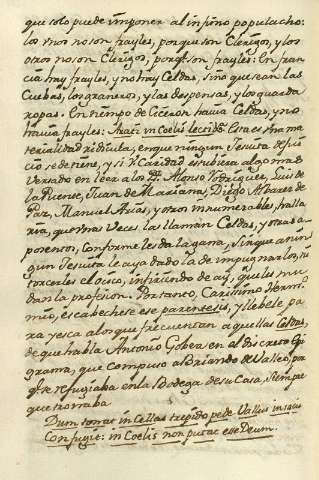 que solo puede imponer al infimo populacho:
los unos no son frayles, porque son Clerigos, y los
otros no son Clerigos, porq. son frayles: En fran
cia hay frayles, y no hay Celdas, sino que sean las
Cuebas, los graneros, y las despensas, y los guarda
ropas. En tiempo de Ciceron havia Celdas, y no
havia frayles: in Coelis Esta es una ma
terialidad ridicula, en que ningun Jesuita de jui
cio se detiene, y si V. Caridad estubiera algo mas
versado en leer a los PP. Alonso Rodriguez, Luis de
la Puente, Juan de Mariana, Diego Alvarez de
Paz, Manuel Arias, y otros innumerables, halla
ria, que unas veces las llaman Celdas, y otras a
posentos, conforme les da la gana, sin que a nin
gun Jesuita le aya dado la de impugnarlos, ni
torcerles el ocico, infiriendo de ay, que les mu
dan la profesion. Portanto, Carissimo Herma
no, escabechese ese parentesis, y llebele pa
ra yesca a los que frecuentan aquellas Celdas,
de que habla Antonio Gobea en el discreto Epi
grama, que compuso a Briando de Valleo, por
q. se refugiaba en la Bodega de su Casa, siempre
que tronaba
Dum tonat in Cellas trepido pede Vallius imas
Confugit: in Coelis non putat esse Deum.